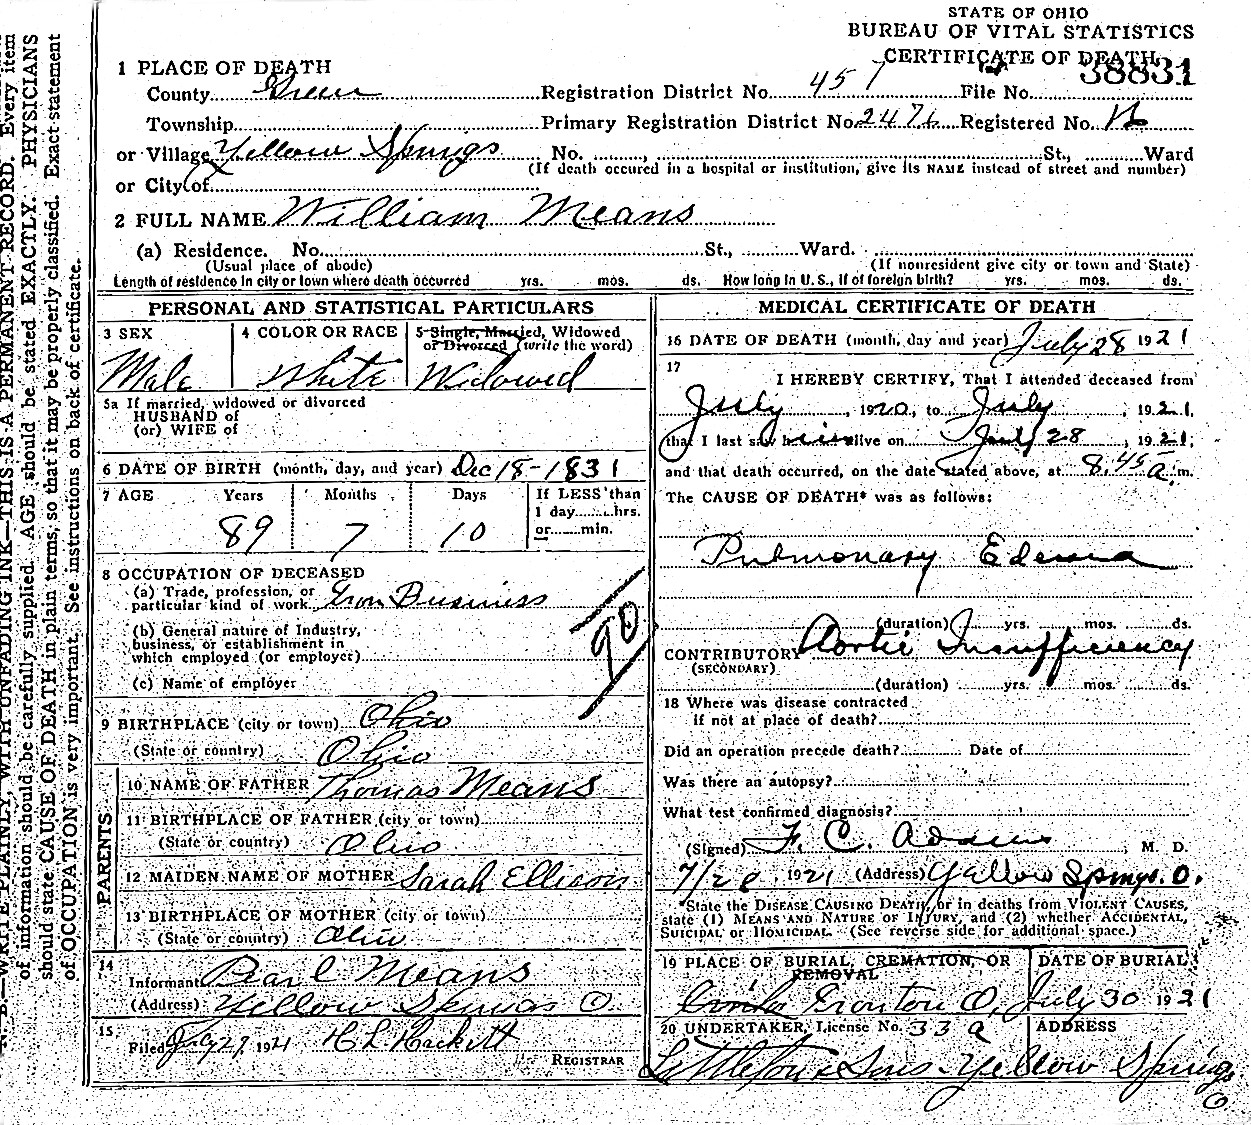 STATE OF OHIO
BUREAU OF VITAL STATISTICS
CERTIFICATE OF DEATH
38831
1 PLACE OF DEATH
County Green Registration District No. 451 File No.
Township Primary Registration District No. 2476 Registered No.
or Village Yellow Springs No. St., Ward
(If death occured in a hospital or institution, give its NAME instead of street and number)
or City of
2 FULL NAME William Means
(a) Residence. No. St., Ward.
(Usual place of abode) (If nonresident give city or town and State)
Length of residence in city or town where death occurred yrs. mos. ds. How long in U. S., if of foreign birth? yrs. mos. ds.
PERSONAL AND STATISTICAL PARTICULARS
3 SEX 4 COLOR OR RACE 5 Single, Married, Widowed
or Divorced (write the word)
Male White Widowed
5a If married, widowed or divorced
HUSBAND of
(or) WIFE of
6 DATE OF BIRTH (month, day, and year) Dec 18-1831
7 AGE Years Months Days If LESS than
1 day hrs.
or min.
89 7 10
8 OCCUPATION OF DECEASED
(a) Trade, profession, or
particular kind of work Iron Business
(b) General nature of Industry,
business, or establishment in
which employed (or employer)
(c) Name of employer
90
9 BIRTHPLACE (city or town) Ohio
(State or country) Ohio
PARENTS
10 NAME OF FATHER Thomas Means
11 BIRTHPLACE OF FATHER (city or town)
(State or country) Ohio
12 MAIDEN NAME OF MOTHER Sarah Ellison
13 BIRTHPLACE OF MOTHER (city or town)
(State or country) Ohio
14
Informant Pearl Means
(Address) Yellow Springs O.
15
Filed 1921 H L Hackett
REGISTRAR
MEDICAL CERTIFICATE OF DEATH
16 DATE OF DEATH (month, day and year) July 28 1921
17
I HEREBY CERTIFY, That I attended deceased from
July, 1920, to July, 1921,
that I last saw him alive on July 28, 1921,
and that death occurred, on the date stated above, at 8.45 a. m.
The CAUSE OF DEATH* was as follows:
Pulmonary Edema
(duration) yrs. mos. ds.
CONTRIBUTORY Aortic Insufficiency
(SECONDARY)
(duration) yrs. mos. ds.
18 Where was disease contracted
if not at place of death?
Did an operation precede death? Date of
Was there an autopsy?
What test confirmed diagnosis?
(Signed) F. C. Adams, M. D.
7/28, 1921 (Address) Yellow Springs. O.
*State the DISEASE CAUSING DEATH, or in deaths from VIOLENT CAUSES,
state (1) MEANS AND NATURE OF INJURY, and (2) whether ACCIDENTAL,
SUICIDAL or HOMICIDAL. (See reverse side for additional space.)
19 PLACE OF BURIAL, CREMATION, OR
REMOVAL
DATE OF BURIAL
Ironton O, July 30 1921
20 UNDERTAKER, License No. 339 ADDRESS
Littleton & Sons Yellow Springs
O
N. B.—WRITE PLAINLY, WITH UNFADING INK—THIS IS A PERMANENT RECORD. Every item
of information should be carefully supplied. AGE should be stated EXACTLY. PHYSICIANS
should state CAUSE OF DEATH in plain terms, so that it may be properly classified. Exact statement
of OCCUPATION is very important. See instructions on back of certificate.